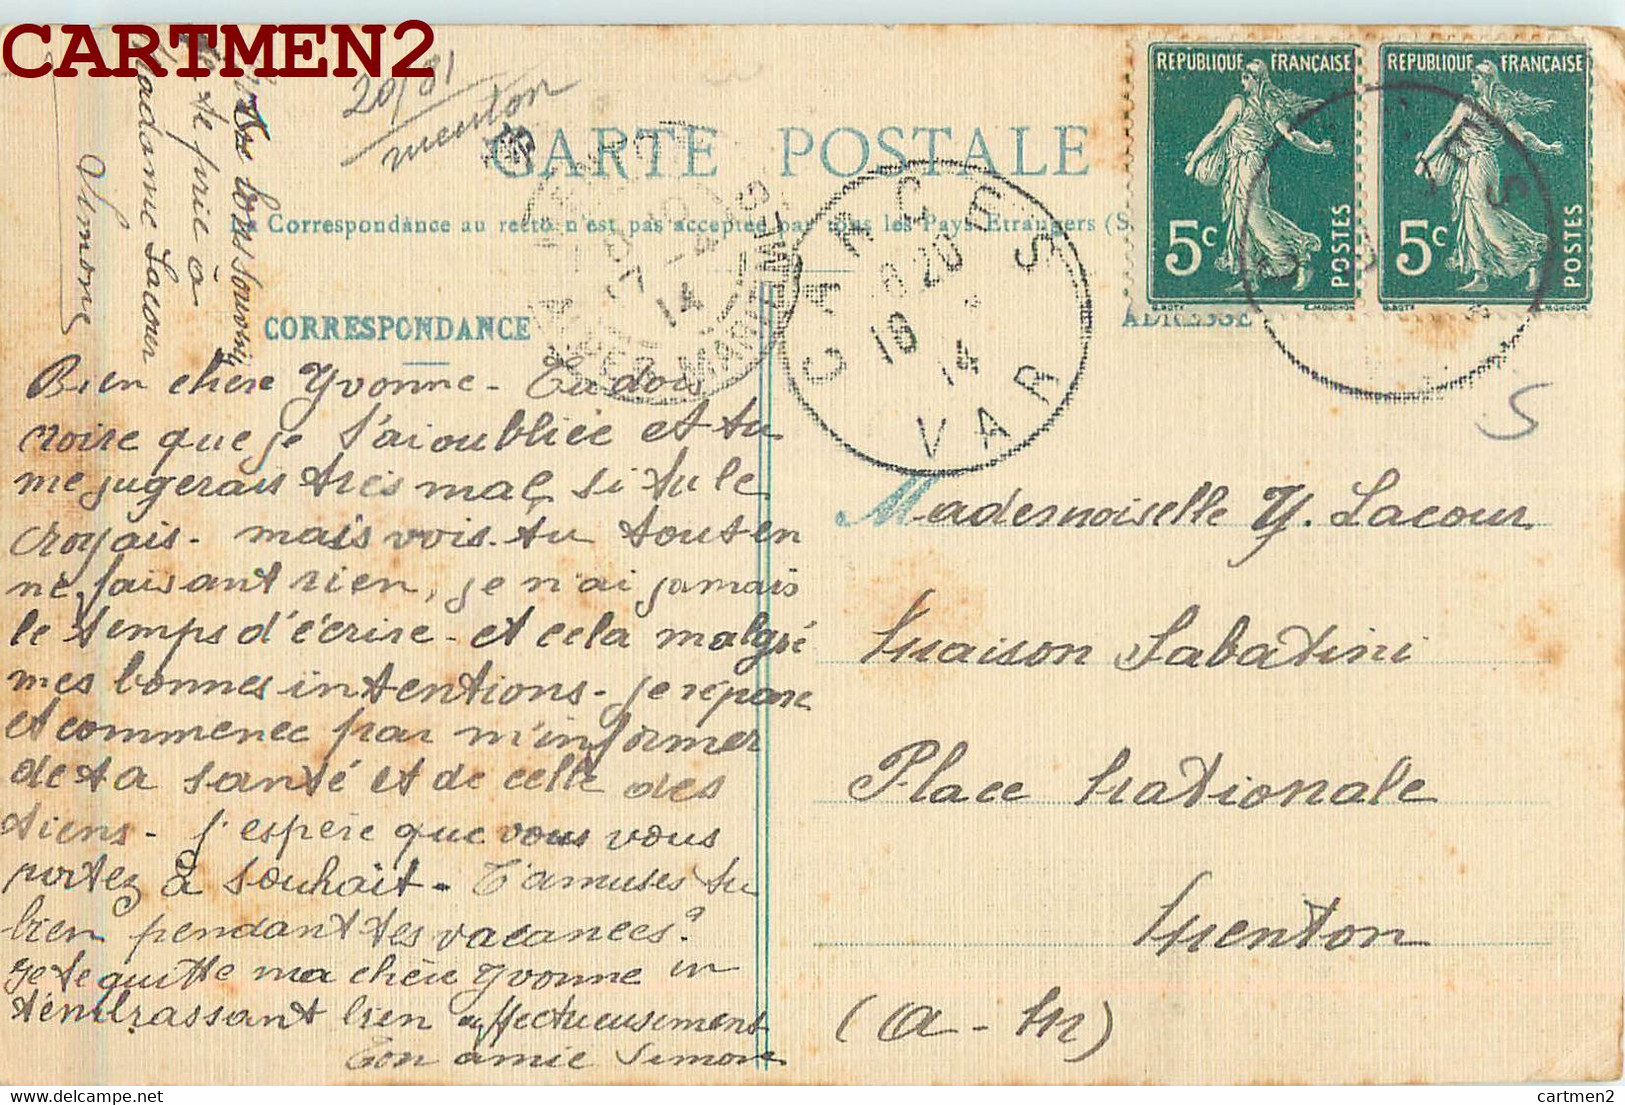 CARTMEN2
20/81
menton
CARTE POSTALE
La Correspondance au recto n'est pas acceptée par tous les Pays Etrangers (S
RÉPUBLIQUE FRANÇAISE
5c POSTES
RÉPUBLIQUE FRANÇAISE
5c POSTES
CARCES
18 14
VAR
MENTON
ALPES MARITIMES
14
CORRESPONDANCE
ADRESSE
bons souvenirs
te prie à
Madame Lacour
Simone
Bien chère Yvonne - Tu dois
croire que je t'ai oubliée et tu
me jugerais très mal si tu le
croyais - mais vois-tu tout en
ne faisant rien, je n'ai jamais
le temps d'écrire - et cela malgré
mes bonnes intentions - je répare
et commence par m'informer
de ta santé et de celle des
tiens - J'espère que vous vous
portez à souhait - T'amuses tu
bien pendant tes vacances ?
Je te quitte ma chère Yvonne en
t'embrassant bien affectueusement
Ton amie Simone
5
Mademoiselle Y. Lacour
Maison Sabatini
Place Nationale
Menton
(A - M)
cartmen2